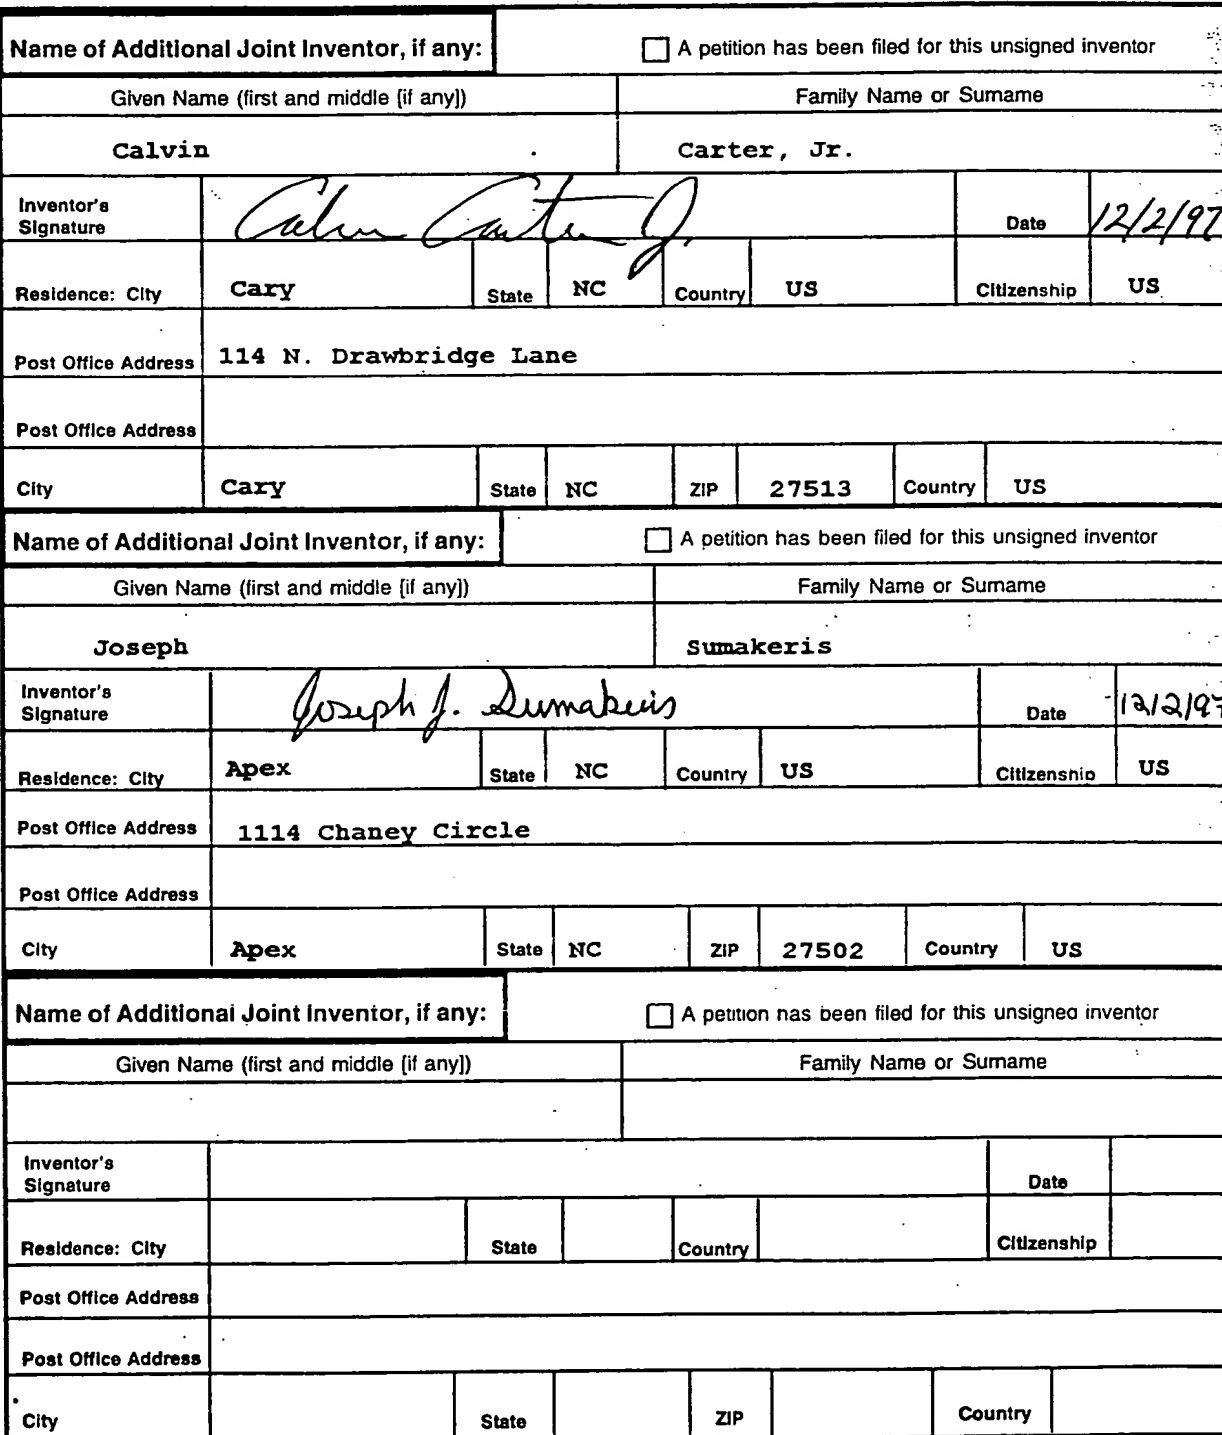 Name of Additional Joint Inventor, if any: A petition has been filed for this unsigned inventor
Given Name (first and middle [if any]) Family Name or Surname
Calvin Carter, Jr.
Inventor's
Signature Calvin Carter Jr. Date 12/2/97
Residence: City Cary State NC Country US Citizenship US
Post Office Address 114 N. Drawbridge Lane
Post Office Address
City Cary State NC ZIP 27513 Country US
Name of Additional Joint Inventor, if any: A petition has been filed for this unsigned inventor
Given Name (first and middle [if any]) Family Name or Surname
Joseph Sumakeris
Inventor's
Signature Joseph J. Sumakeris Date 12/2/97
Residence: City Apex State NC Country US Citizenship US
Post Office Address 1114 Chaney Circle
Post Office Address
City Apex State NC ZIP 27502 Country US
Name of Additional Joint Inventor, if any: A petition has been filed for this unsigned inventor
Given Name (first and middle [if any]) Family Name or Surname
Inventor's
Signature Date
Residence: City State Country Citizenship
Post Office Address
Post Office Address
City State ZIP Country